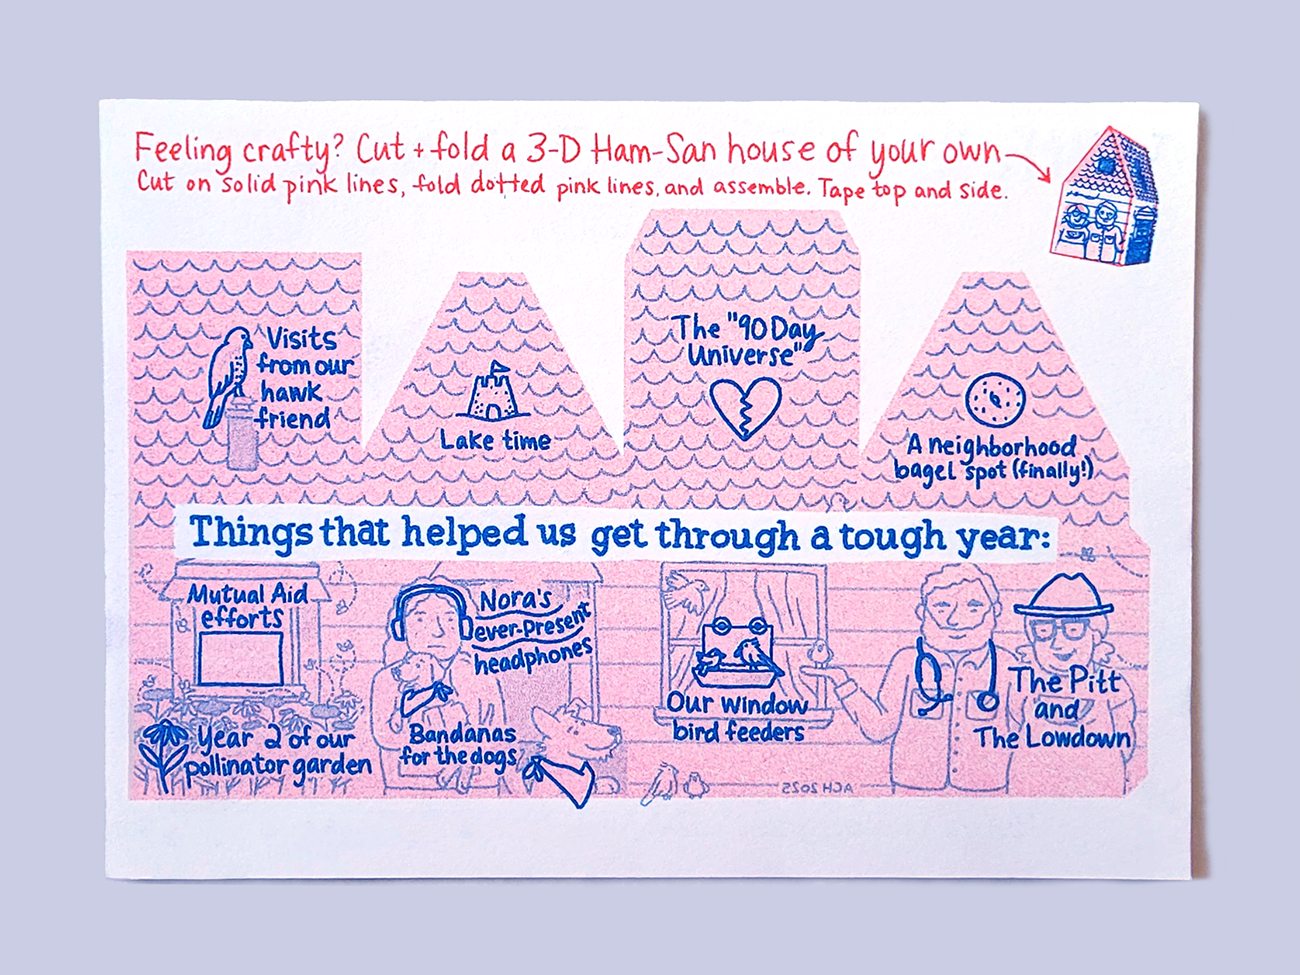 Feeling crafty? Cut + fold a 3-D Ham-San house of your own
Cut on solid pink lines, fold dotted pink lines, and assemble. Tape top and side.
Visits
from our
hawk
friend
Lake time
The "90 Day
Universe"
A neighborhood
bagel spot (finally!)
Things that helped us get through a tough year:
Mutual Aid
efforts
Year 2 of our
pollinator garden
Nora's
ever-present
headphones
Bandanas
for the dogs
Our window
bird feeders
The Pitt
and
The Lowdown
ACH 2025